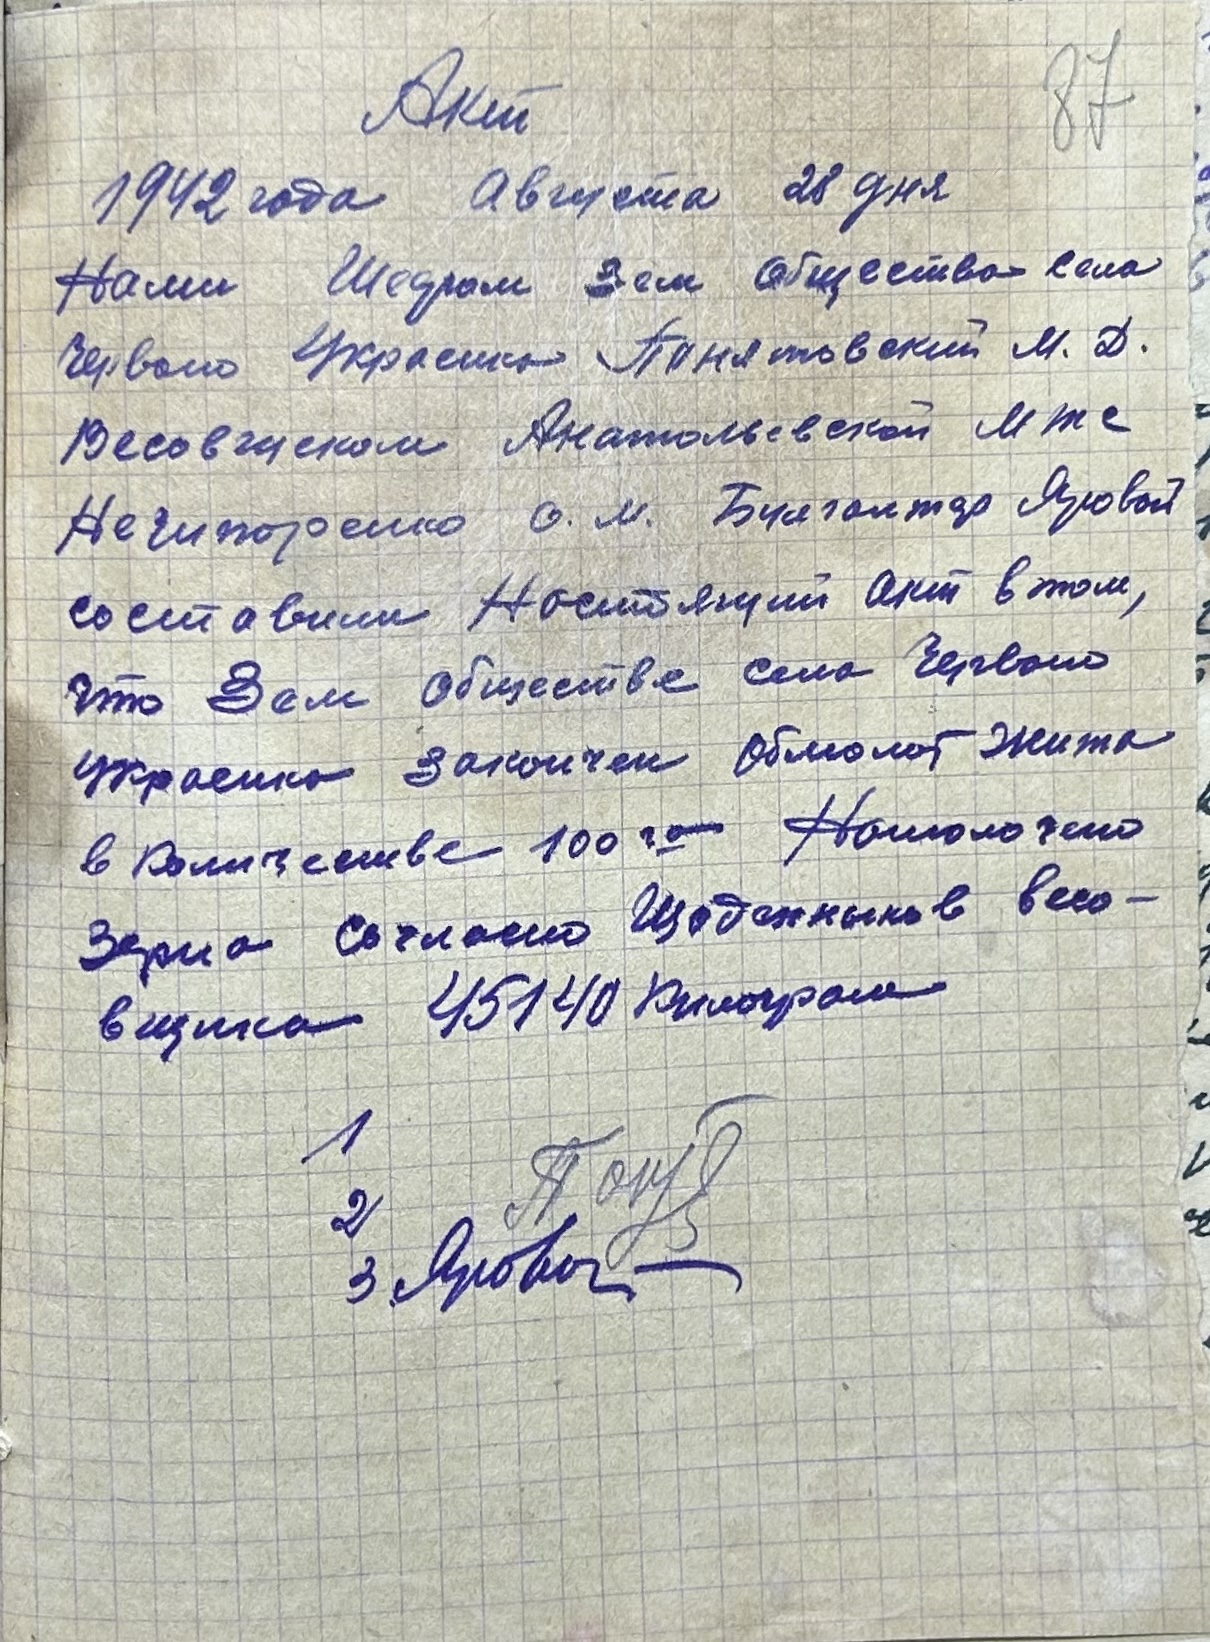 87
Акт
1942 года Августа 28 дня
Нами Шефом Зем общества села
Червоно Украинка Понятовский М. Д.
Весовщиком Анатольевской МТС
Нечипоренко О. М. Бухгалтер Яровой
составили Настоящий акт в том,
что Зем обществе села Червоно
Украинка Закончен обмолот Жита
в количестве 100 га Намолочено
Зерна Согласно Щоденников весо-
вщика 45140 Килограм
1
2
3. Яровой